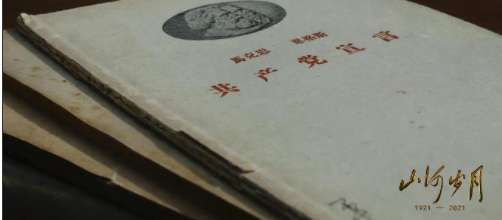 馬克思 恩格斯
共产党宣言
山河岁月
1921 — 2021